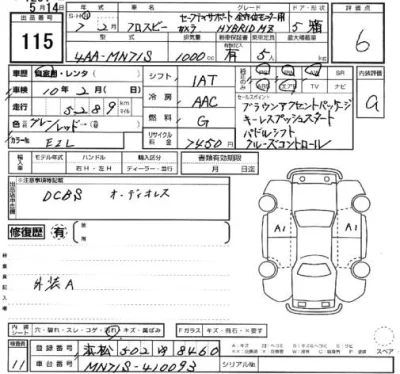 5月14日
出品番号 115
S・H 7年2月 クロスビー HYBRID MZ 5 箱
セーフティサポート 全方位モニター用カメラ
型式 排気量 新車保証書 乗車定員 最大積載量 評価点
4AA-MN71S 1000cc 有 5人 6
車歴 自家用・レンタ シフト IAT
車検 10年2月(   日) 冷房 AAC
走行 5289 km マイル 燃料 G
色 グレー/レッド リサイクル料金 7450円
カラーNo. EZL
SR TV ナビ 内装評価 a
セールスポイント
ブラウンアクセントパッケージ
キーレスプッシュスタート
パドルシフト
クルーズコントロール
輸入車 モデル年式 年 ハンドル 右H・左H 輸入区分 ディーラー・並行 書類有効期限 月 日迄
※注意事項等記載
DCBS オーディオレス
修復歴 有
A1 A1
外装A
内装シート 穴・破れ・スレ・コゲ・汚れ・キズ・黄ばみ Fガラス キズ・飛石・K要す
検査員 11
登録番号 浜松 502 ゆ 8460
スペア
車台番号 MN71S-410093 シリアルNo.